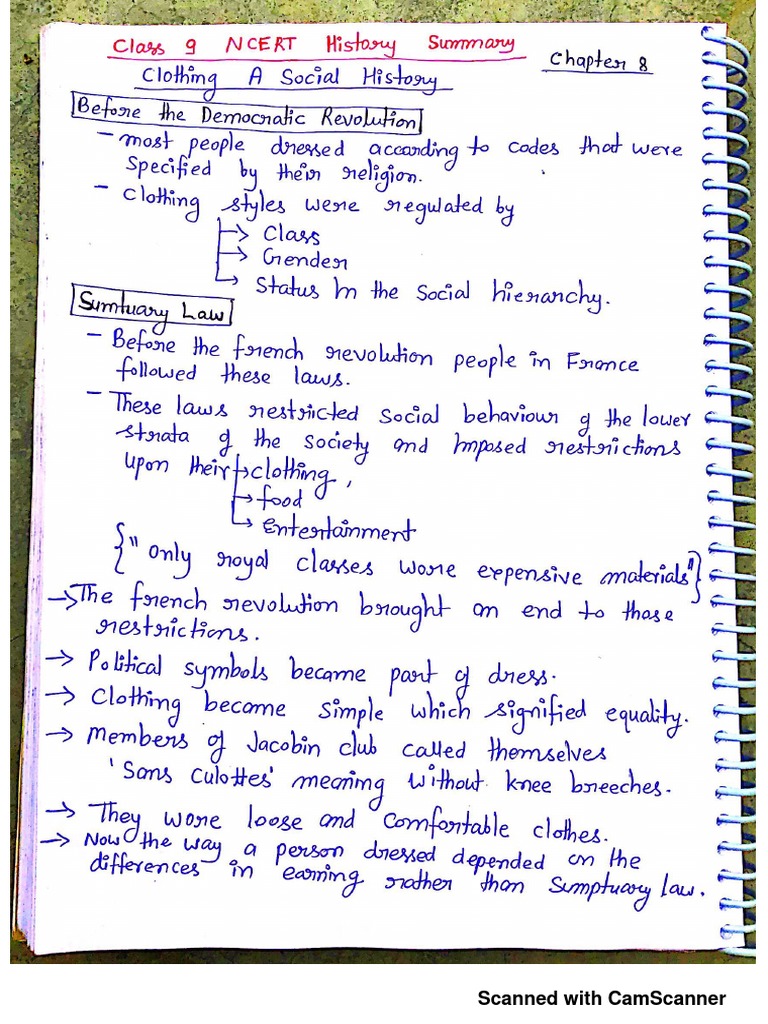 Class 9 NCERT History Summary
Chapter 8
Clothing A Social History
Before the Democratic Revolution
- most people dressed according to codes that were
specified by their religion.
- Clothing styles were regulated by
→ Class
→ Gender
→ Status In the Social hierarchy.
Sumtuary Law
- Before the french revolution people in France
followed these laws.
- These laws restricted Social behaviour of the lower
strata of the society and Imposed restrictions
upon their → clothing,
→ food
→ Entertainment
{"Only royal classes wore expensive materials"}
→ The french revolution brought an end to those
restrictions.
→ Political symbols became part of dress.
→ Clothing became simple which signified equality.
→ members of Jacobin club called themselves
'Sans Culottes' meaning without knee breeches.
→ They wore loose and comfortable clothes.
→ Now the way a person dressed depended on the
differences in earning rather than Sumptuary law.
Scanned with CamScanner